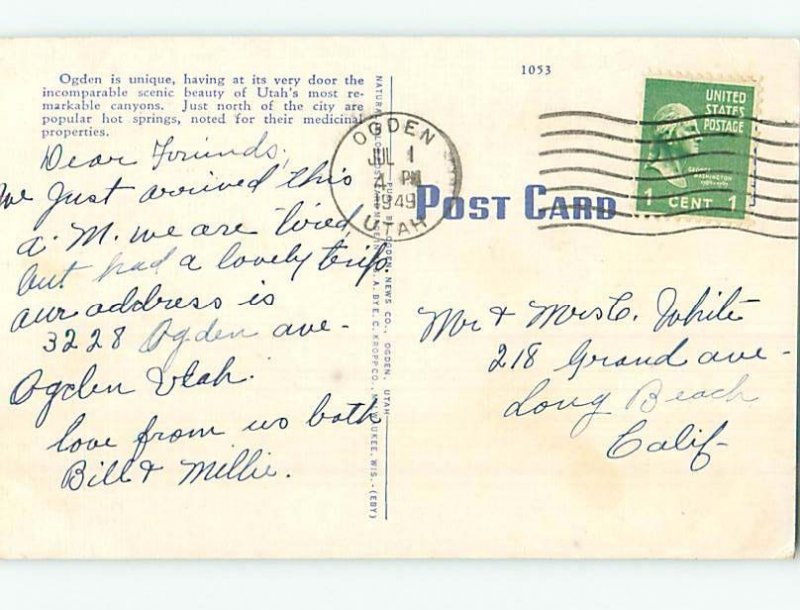 1053
Ogden is unique, having at its very door the
incomparable scenic beauty of Utah's most re-
markable canyons. Just north of the city are
popular hot springs, noted for their medicinal
properties.
Dear Friends,
We Just arrived this
a.M. we are tired
but had a lovely trip.
our address is
3228 Ogden ave-
Ogden Utah.
love from us both
Bill & Millie.
PUB. BY OGDEN NEWS CO., OGDEN, UTAH
BY E. C. KROPP CO., MILWAUKEE, WIS.-(EBY)
OGDEN
JUL 1
4 PM
1949
UTAH
POST CARD
UNITED
STATES
POSTAGE
GEORGE
WASHINGTON
1 CENT 1
Mr & Mrs C. White
218 Grand ave-
Long Beach
Calif-